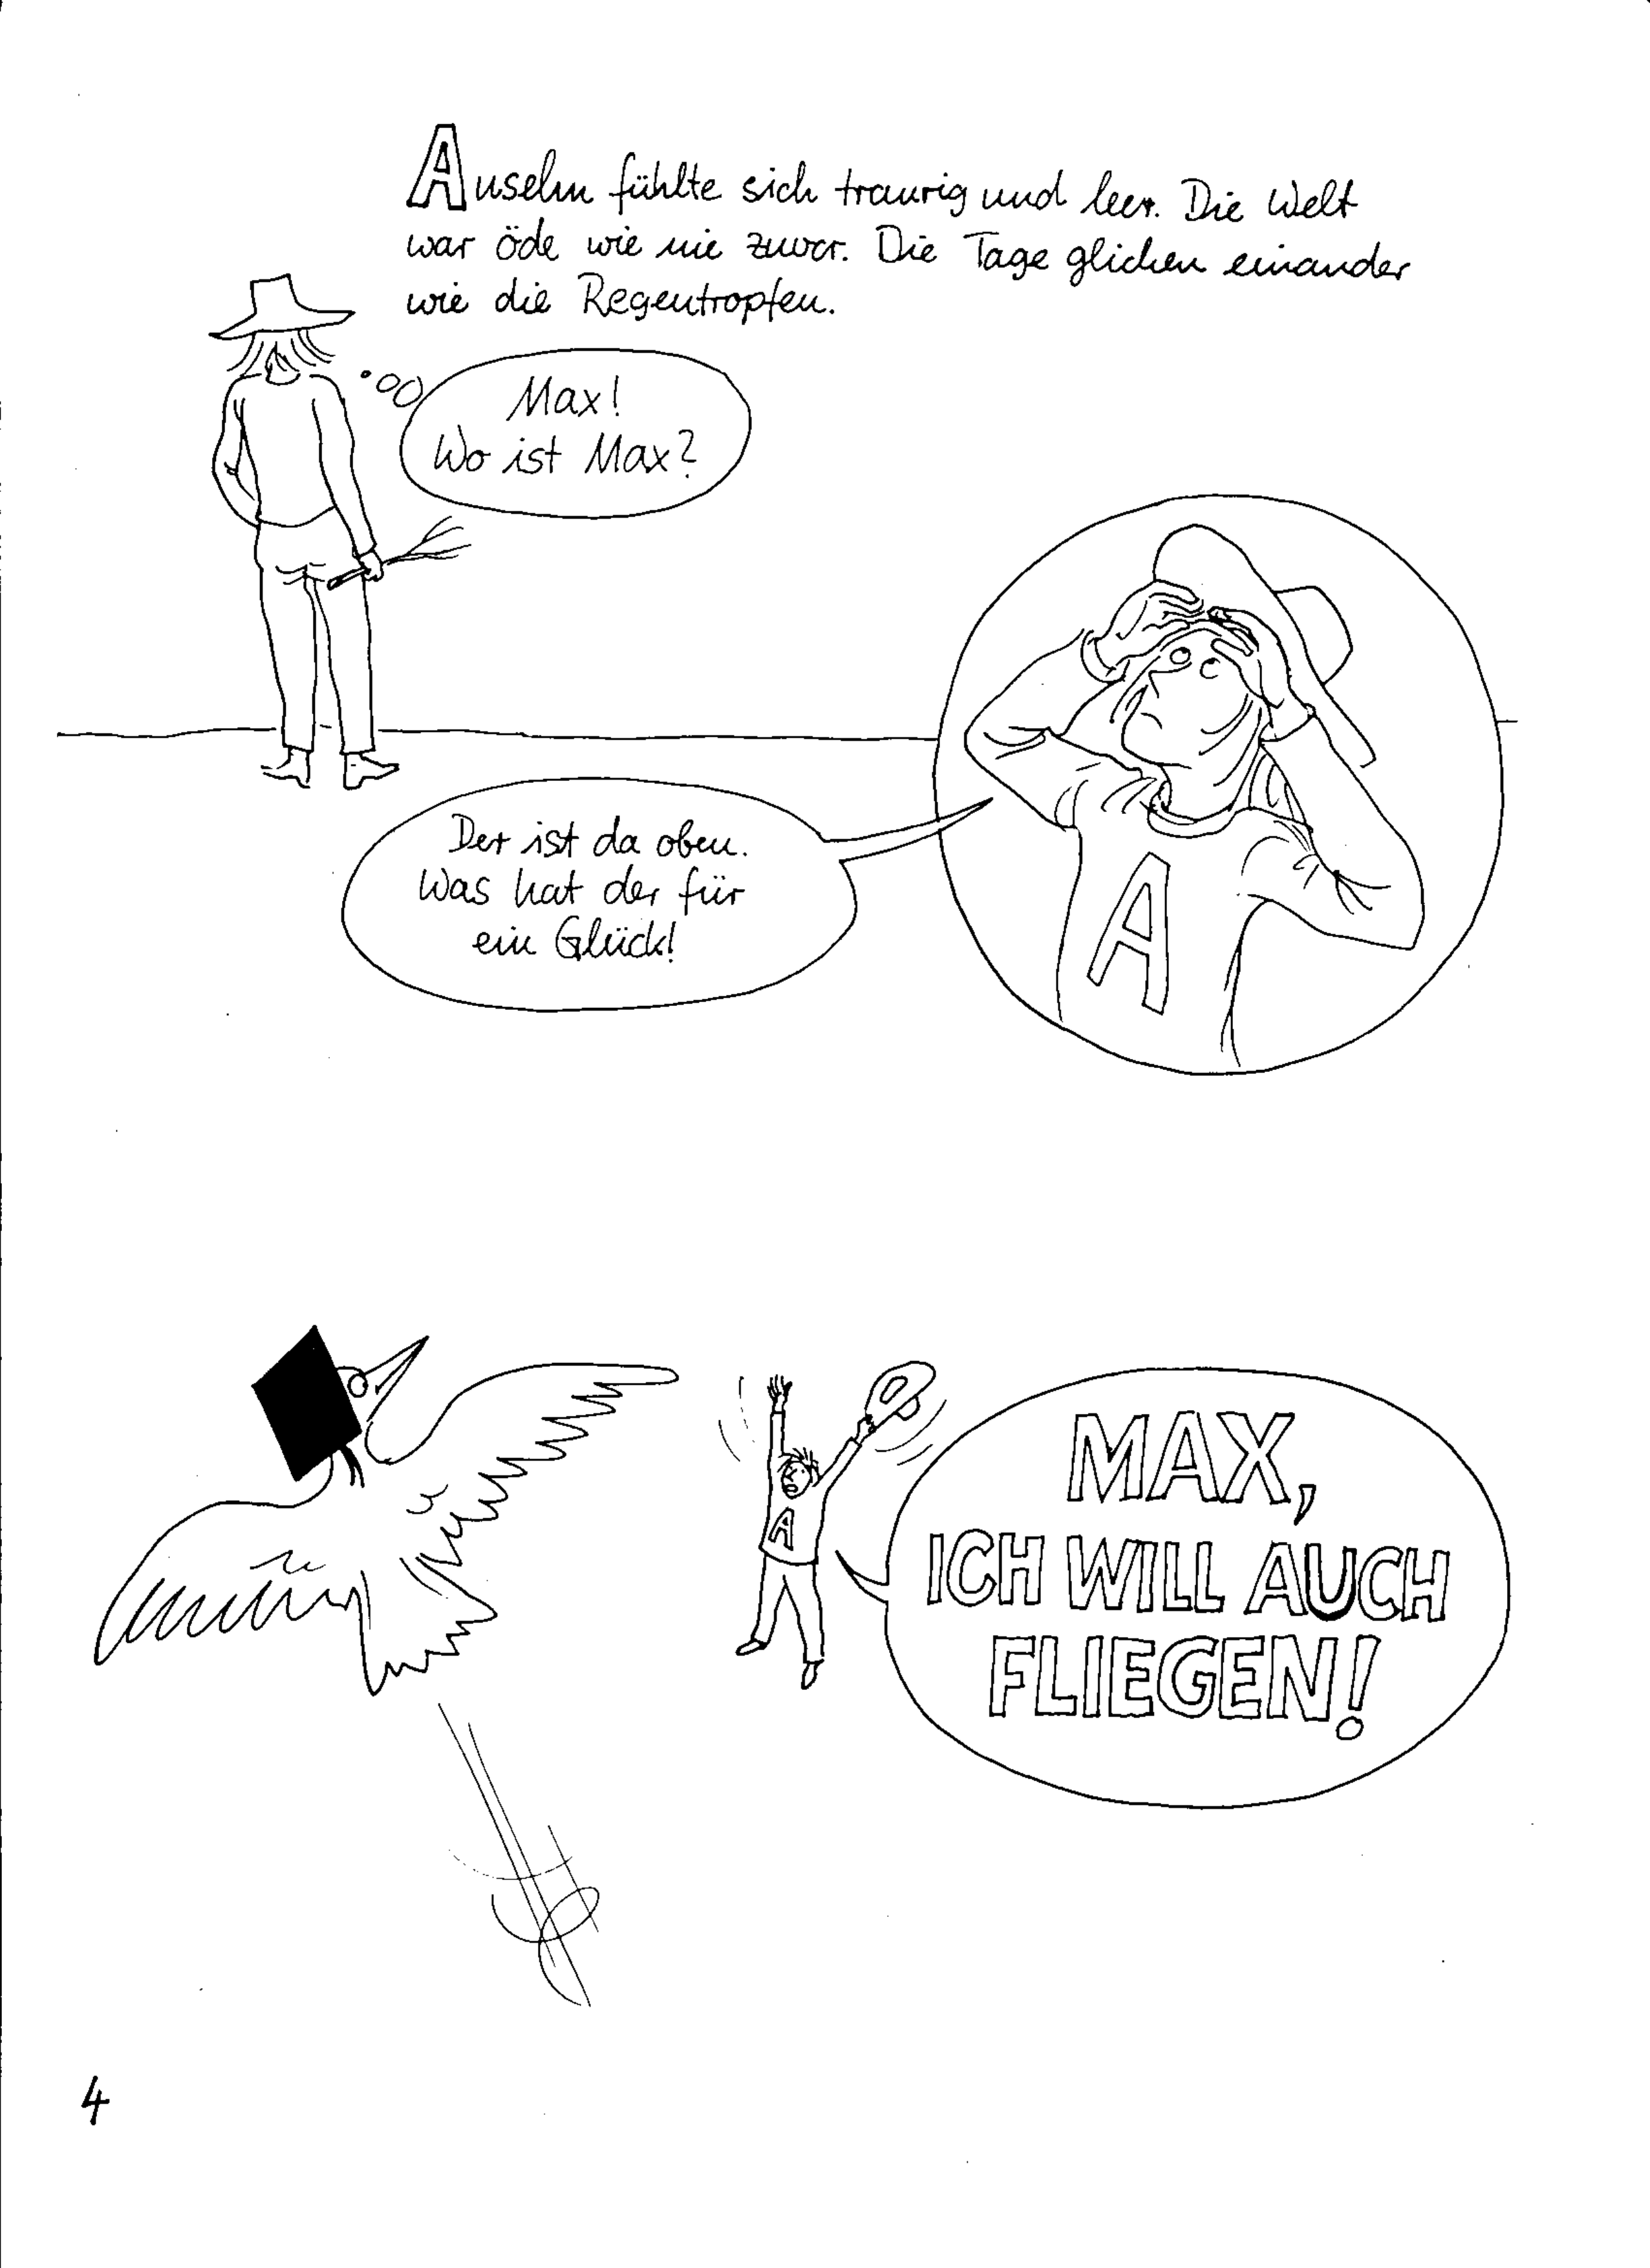 Anselm fühlte sich traurig und leer. Die Welt
war öde wie nie zuvor. Die Tage glichen einander
wie die Regentropfen.
Max!
Wo ist Max?
Der ist da oben.
Was hat der für
ein Glück!
A
A
MAX,
ICH WILL AUCH
FLIEGEN!
4